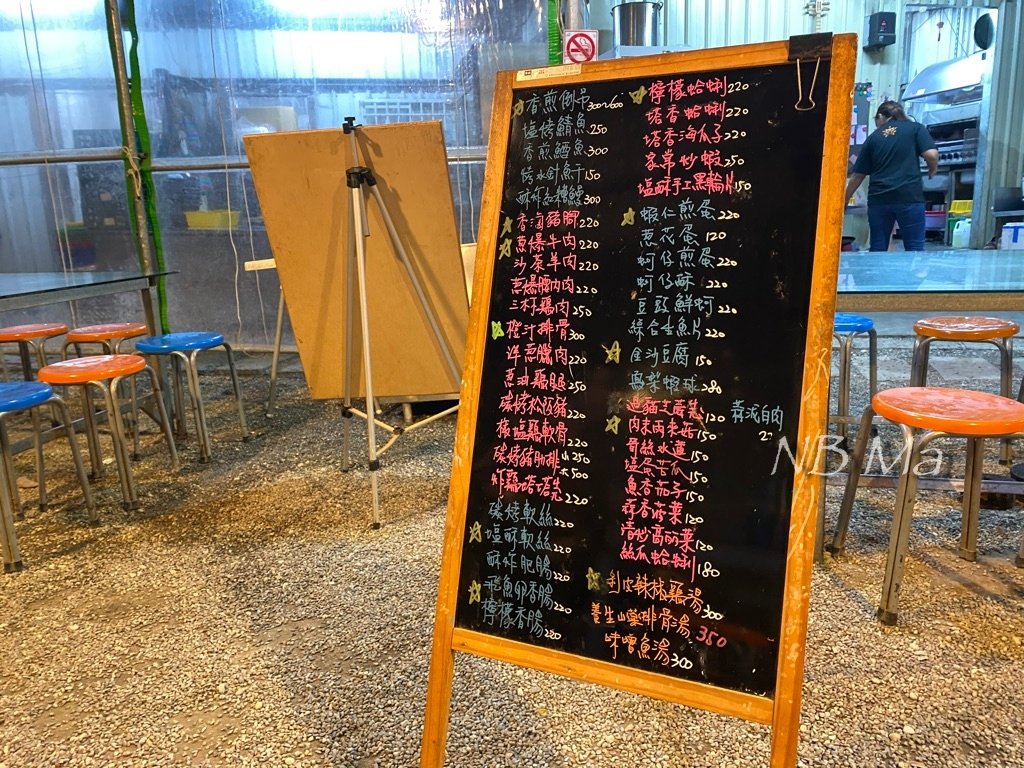 香煎倒吊300~600
塩烤鯖魚250
香煎鱈魚300
烤水針魚干150
酥炸紅糟鰻300
香滷豬腳220
蔥爆牛肉220
沙茶羊肉220
蔥爆鹹肉220
三杯雞肉250
橙汁排骨300
洋蔥臘肉220
蔥油雞腿250
碳烤松阪豬220
椒塩雞軟骨220
碳烤豬肋排小250
大500
炸雞塔塔先220
碳烤軟絲220
塩酥軟絲220
酥炸肥腸220
飛魚卵香腸220
檸檬香腸220
檸檬蛤蜊220
塔香蛤蜊220
塔香海瓜子220
家常炒蝦250
塩酥手工黑輪片150
蝦仁煎蛋220
蔥花蛋120
蚵仔煎蛋220
蚵仔酥220
豆豉鮮蚵220
綜合生魚片220
金沙豆腐150
鳳梨蝦球280
過貓120
蒜泥白肉
肉末雨來菇150
哥絲水蓮150
塩蛋苦瓜150
魚香茄子150
蒜香菠菜120
清炒高麗菜120
絲瓜蛤蜊180
剝皮辣椒雞湯300
養生山藥排骨湯350
味噌魚湯300
NB Ma